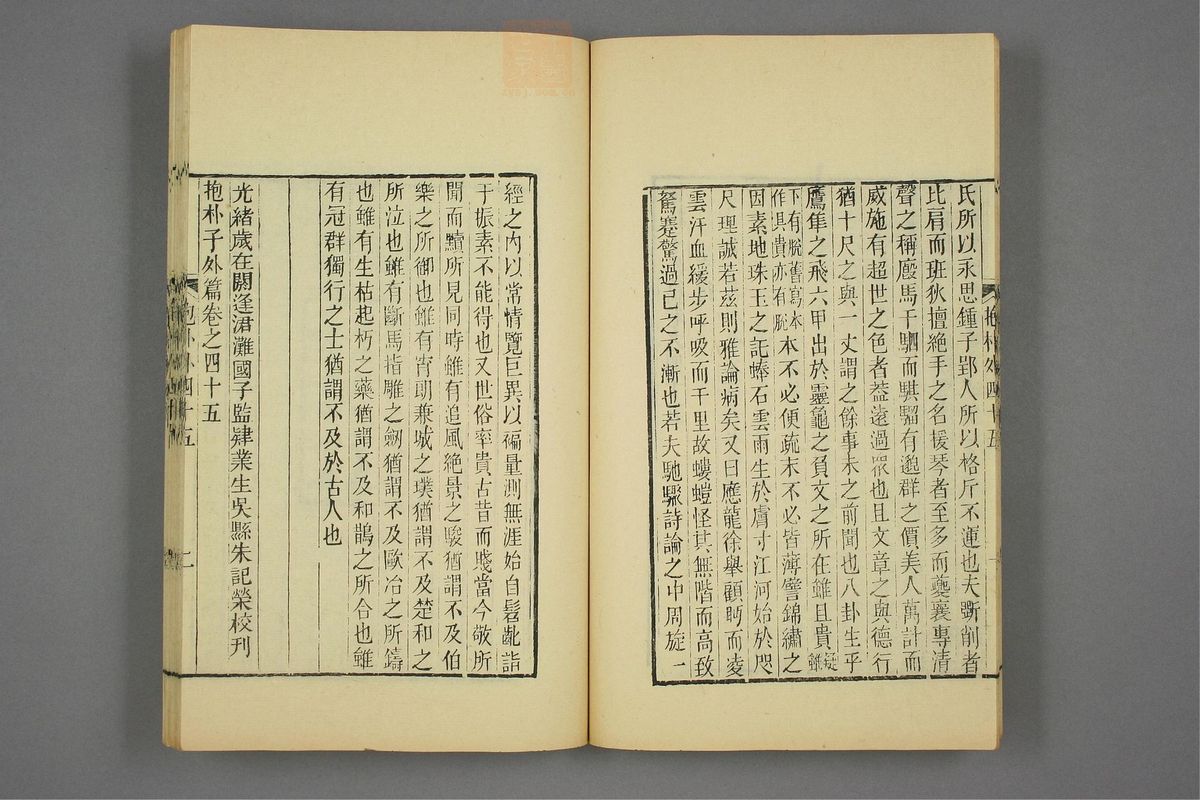 氏所以永思鍾子郢人所以格斤不運也夫斲削者
比肩而班狄擅絶手之名援琴者至多而夔襄專清
聲之稱廄馬千駟而騏驑有邈群之價美人萬計而
威施有超世之色者葢遠過衆也且文章之與德行
猶十尺之與一丈謂之餘事未之前聞也八卦生乎
鷹隼之飛六甲出於靈龜之負文之所在雖且貴疑雖
下有脫舊寫本作具貴亦有脫本不必便疏末不必皆薄譬錦繡之
因素地珠玉之託蜯石雲雨生於膚寸江河始於咫
尺理誠若茲則雅論病矣又曰應龍徐舉顧眄而凌
雲汗血緩步呼吸而千里故螻螘怪其無階而高致
駑蹇驚過已之不漸也若夫馳驟詩論之中周旋一
抱朴外四十五
經之內以常情覽巨異以褊量測無涯始自髫齔詣
于振素不能得也又世俗率貴古昔而賤當今敬所
聞而黷所見同時雖有追風絶景之駿猶謂不及伯
樂之所御也雖有宵朗兼城之璞猶謂不及楚和之
所泣也雖有斷馬指雕之劒猶謂不及歐冶之所鑄
也雖有生枯起朽之藥猶謂不及和鵲之所合也雖
有冠群獨行之士猶謂不及於古人也
光緒歲在閼逢涒灘國子監肄業生吳縣朱記榮校刊
抱朴子外篇卷之四十五